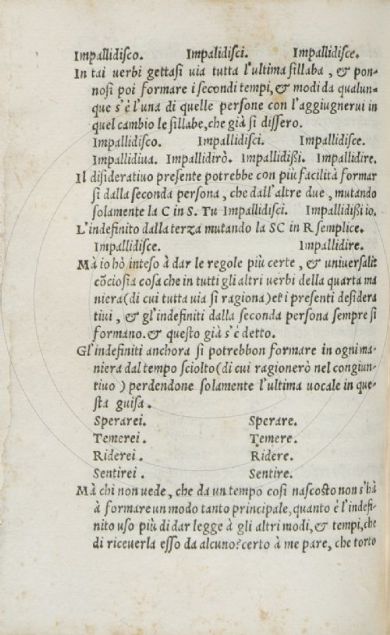 Impallidisco. Impalidisci. Impallidisce.
In tai uerbi gettasi uia tutta l'ultima sillaba, & pon-
nosi poi formare i secondi tempi, & modi da qualun-
que s'è l'una di quelle persone con l'aggiugnerui in
quel cambio le sillabe, che già si dissero.
Impallidisco. Impallidisci. Impallidisce.
Impallidiua. Impallidirò. Impallidißi. Impallidire.
Il disideratiuo presente potrebbe con più facilità formar
si dalla seconda persona, che dall'altre due, mutando
solamente la C in S. Tu Impallidisci. Impallidißi io.
L'indefinito dalla terza mutando la SC in R semplice.
Impallidisce. Impallidire.
Mà io hò inteso à dar le regole più certe, & uniuersali: e
cõciosia cosa che in tutti gli altri uerbi della quarta ma
niera (di cui tutta uia si ragiona) et i presenti desidera
tiui, & gl'indefiniti dalla seconda persona sempre si
formano. & questo già s'è detto.
Gl'indefiniti anchora si potrebbon formare in ogni ma-
niera dal tempo sciolto (di cui ragionerò nel congiun-
tiuo) perdendone solamente l'ultima uocale in que-
sta guisa.
Sperarei. Sperare.
Temerei. Temere.
Riderei. Ridere.
Sentirei. Sentire.
Mà chi non uede, che da un tempo così nascosto non s'hà
à formare un modo tanto principale, quanto è l'indefi-
nito uso più di dar legge à gli altri modi, & tempi, che
di riceuerla esso da alcuno? certo à me pare, che torto